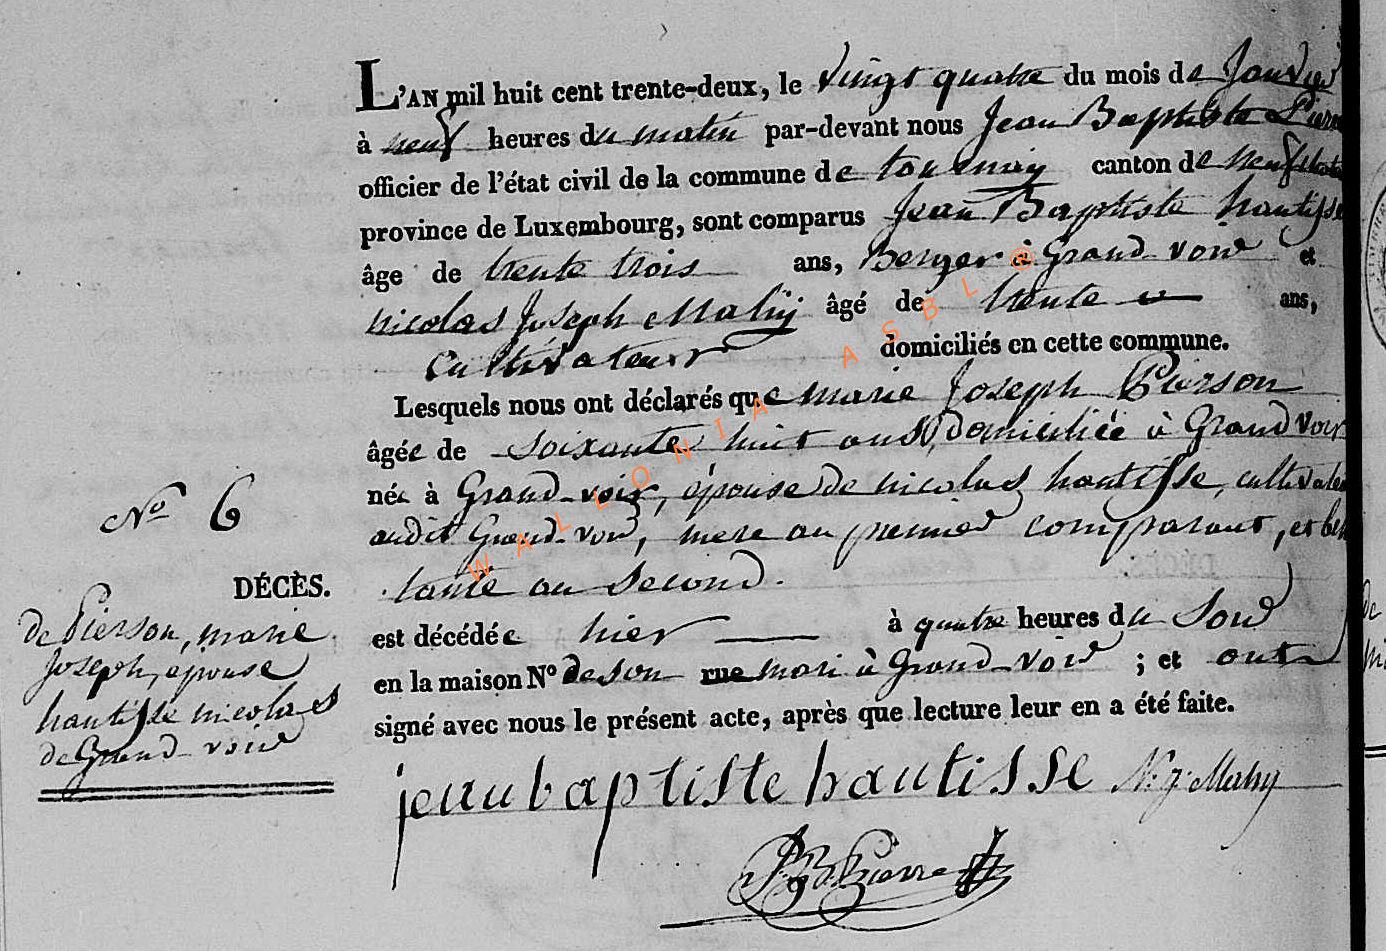 L'AN mil huit cent trente-deux, le vingt quatre du mois de Janvier
à neuf heures du matin par-devant nous Jean Baptiste Pierre
officier de l'état civil de la commune de tournay canton de neufchateau
province de Luxembourg, sont comparus Jean Baptiste hautisse
âge de trente trois ans, Berger à Grand-voir et
nicolas Joseph Mahy âgé de trente ans,
Cultivateur domiciliés en cette commune.
Lesquels nous ont déclarés que marie Joseph Pierson
âgée de soixante huit ans, domiciliée à Grand voir
née à Grand-voir, épouse de nicolas hautisse, cultivateur
audit Grand-voir, mere au premier comparant, et belle
tante au Second.
est décédée hier à quatre heures du Soir
en la maison Nº de son rue mari à Grand-voir ; et ont
signé avec nous le présent acte, après que lecture leur en a été faite.
Nº 6
DÉCÈS.
de Pierson, marie
Joseph, epouse
hautisse nicolas
de Grand-voir
jean baptiste hautisse N. J. Mahy
J. B. Pierre
WALLONIA ASBL @